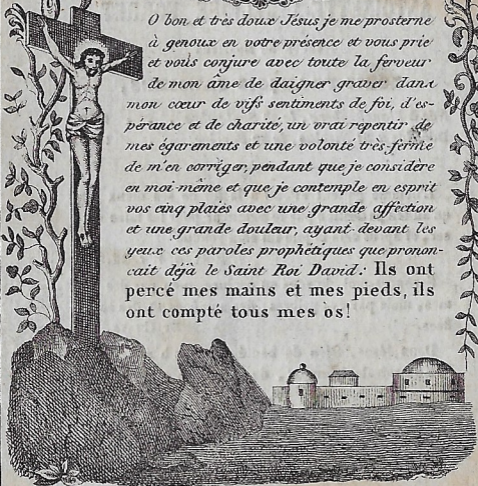 O bon et très doux Jésus je me prosterne
à genoux en votre présence et vous prie
et vous conjure avec toute la ferveur
de mon âme de daigner graver dans
mon cœur de vifs sentiments de foi, d'es-
pérance et de charité, un vrai repentir de
mes égarements et une volonté très-ferme
de m'en corriger, pendant que je considère
en moi-même et que je contemple en esprit
vos cinq plaies avec une grande affection
et une grande douleur, ayant devant les
yeux ces paroles prophétiques que pronon-
cait déjà le Saint Roi David: Ils ont
percé mes mains et mes pieds, ils
ont compté tous mes os!